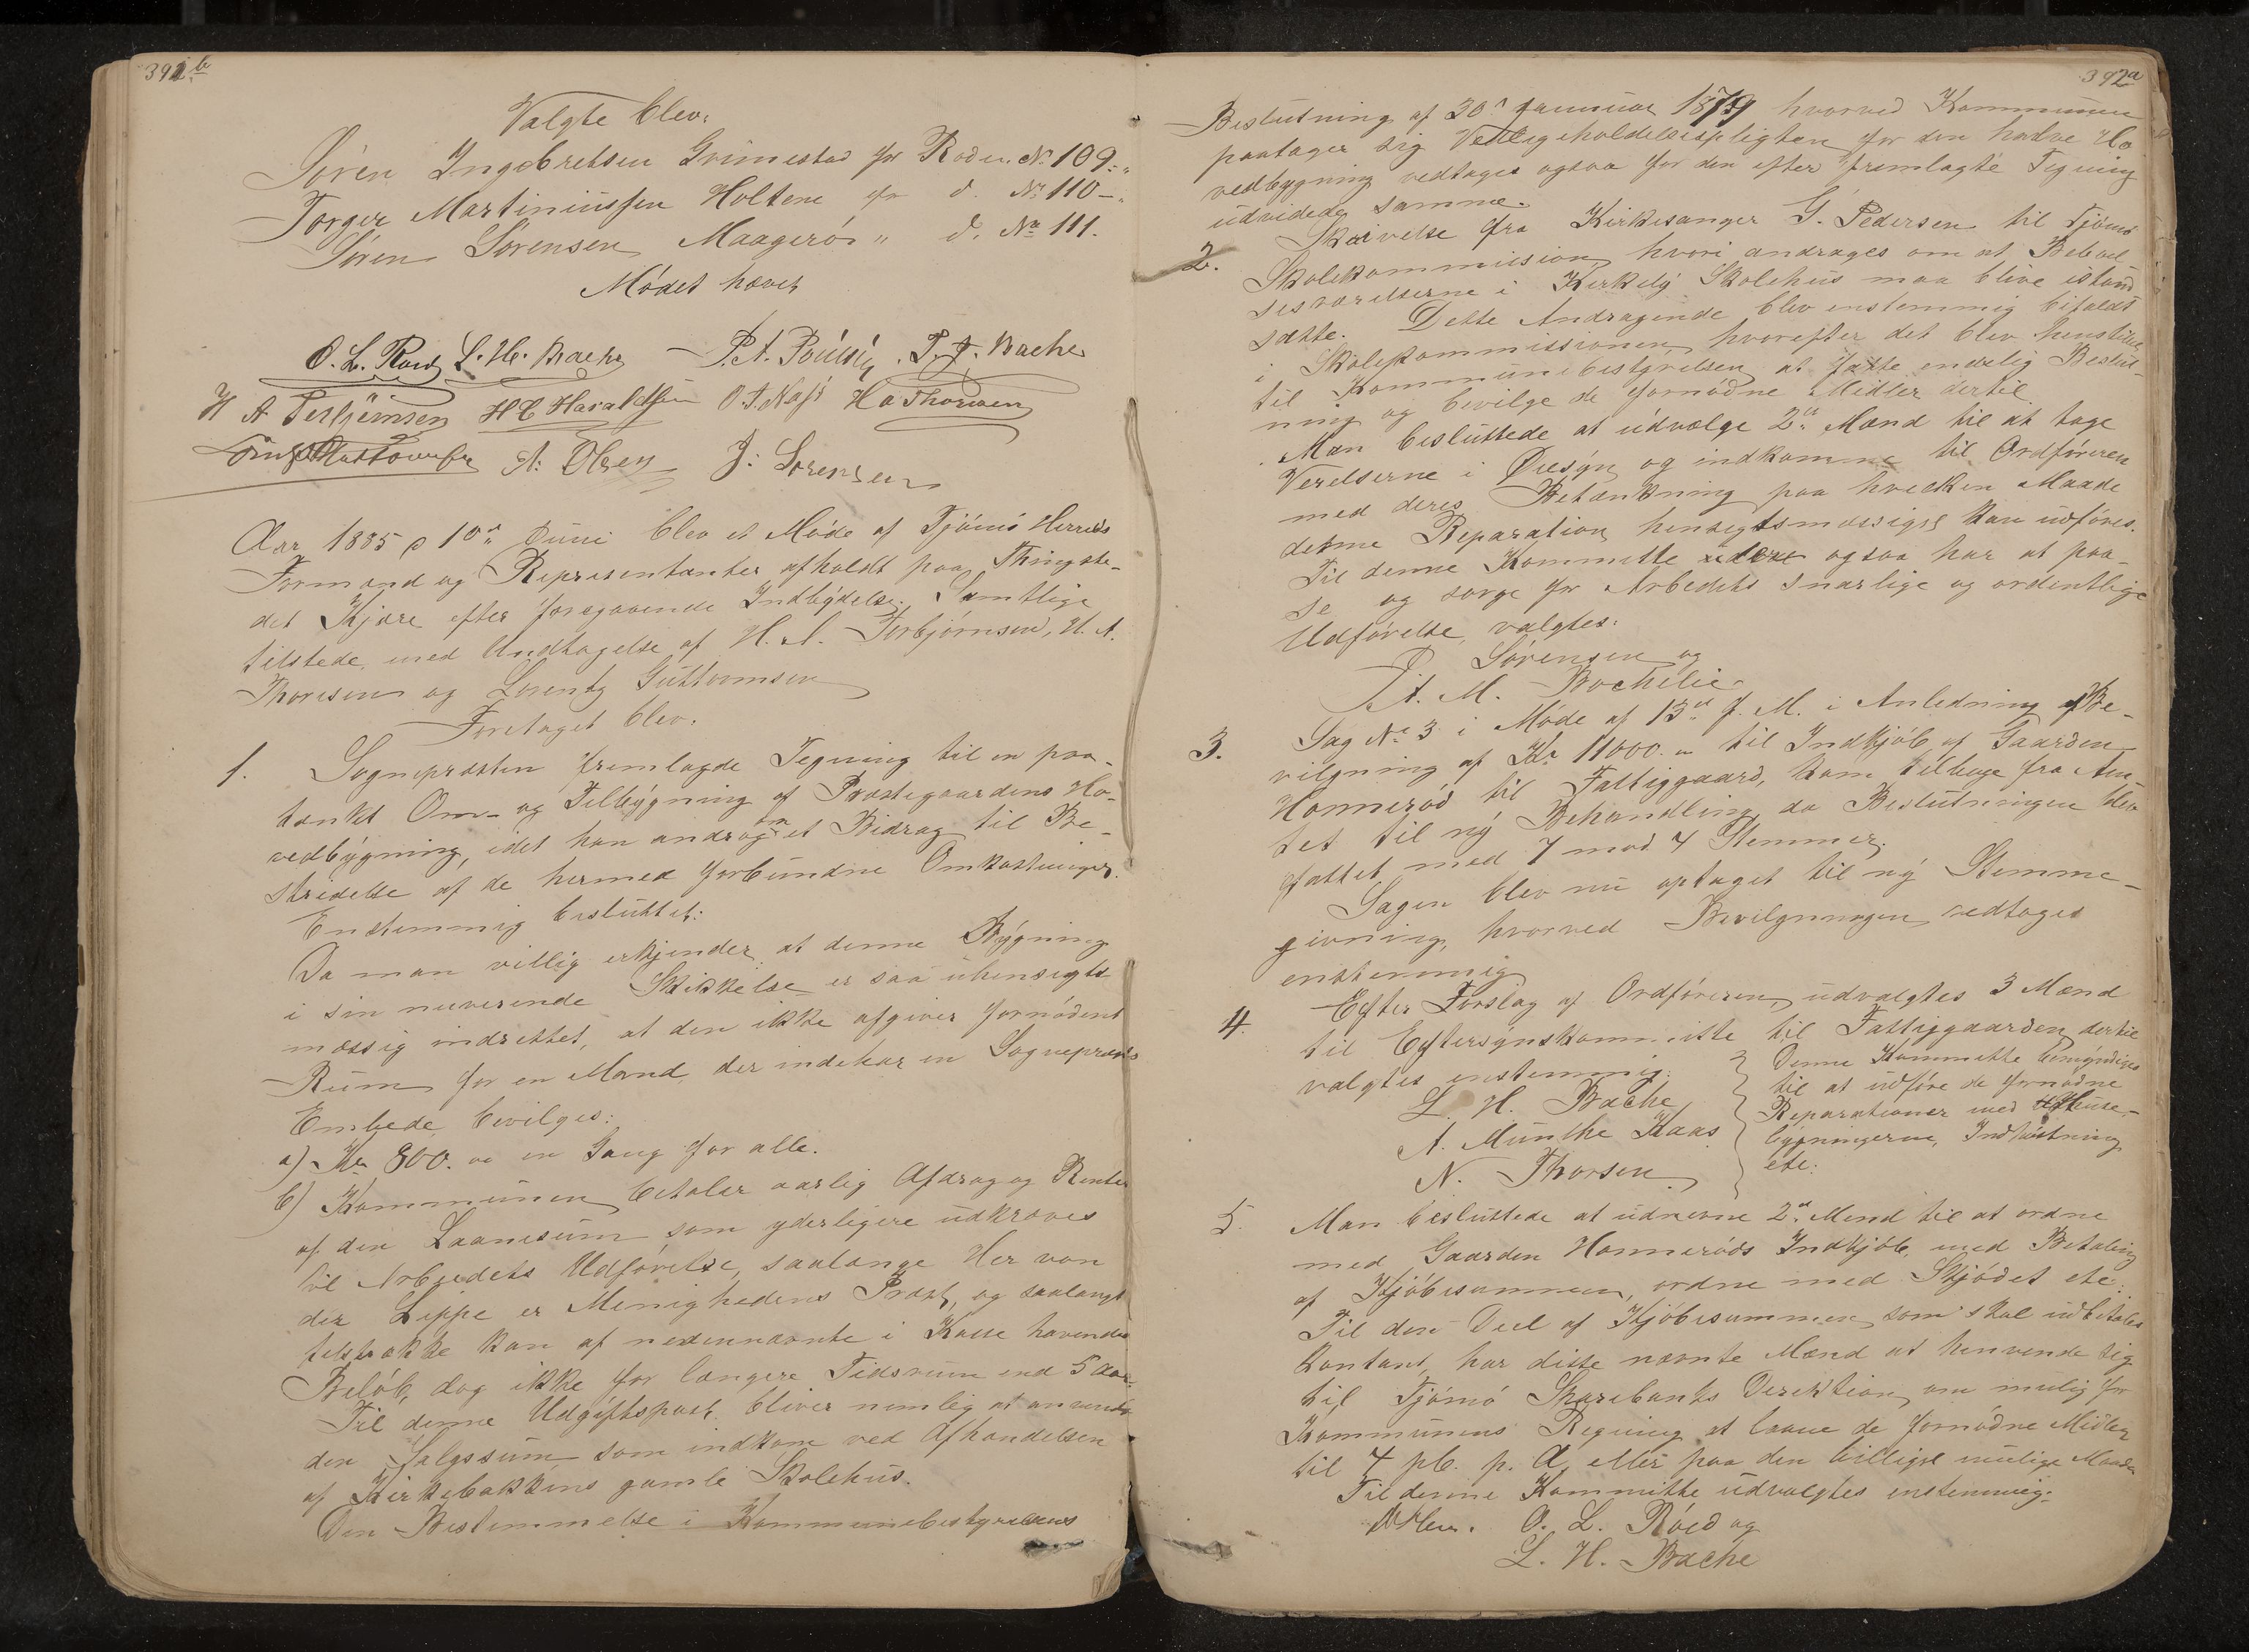 391b
Valgte blev:
Sören Ingebretsen Grimestad for Roden No 109.
Torger Martiniussen Holtene for d. No 110
Sören Sörensen Maagerö " d. No 111.
Mödet hævet
O. L. Röed L. H. Bache P. A. Poulsen P. J. Bache
H A Terbjörnsen H C Haraldsen O. J. Næss H A Thorsen
A. Olsen J. Sörensen
Aar 1885 d 10de Juni blev et Möde af Tjömö Herreds
Formænd og Repræsentanter afholdt paa Thingste-
det Kjære efter foregaaende Indbydelse. Samtlige
tilstede, med Undtagelse af H. A. Terbjörnsen, H. A.
Thoresen og Lorentz Guttormsen
Foretaget blev:
1. Sognepræsten fremlagde Tegning til en paa-
tænkt Om- og Tilbygning af Præstegaardens Ho-
vedbygning, idet han androg om et Bidrag til Be-
stridelse af de hermed forbundne Omkostninger.
Enstemmig besluttet:
Da man villig erkjender, at denne Bygning
i sin nuværende Skikkelse er saa uhensigts
mæssig indrettet, at den ikke afgiver fornödent
Rum for en Mand, der indehar en Sognepræsts
Embede, bevilges:
a) Kr 800. en Gang for alle.
b) Kommunen betaler aarlig Afdrag og Renter
af den Laanesum som yderligere udkræves
til Arbeidets Udförelse, saalænge Her von
der Lippe er Menighedens Præst, og saalangt
tilstrække kan af nedennævnte i Kasse havende
Belöb, dog ikke for længere Tidsrum end 5 Aar.
Til denne Udgiftspost bliver nemlig at anvende
den Salgssum, som indkom ved Afhændelsen
af Kirkebakkens gamle Skolehus.
Den Bestemmelse i Kommunebestyrelsens
392a
Beslutning af 30te Januar 1879 hvorved Kommunen
paatager sig Vedligeholdelsespligten for den halve Ho
vedbygning vedtages ogsaa for den efter fremlagte Tegning
udvidede samme.
2. Skrivelse fra Kirkesanger G. Pedersen til Tjömö
Skolekommission, hvori andrages om at Beboel
sesværelserne i Kirkely Skolehus maa blive istand
sætte. Dette Andragende blev enstemmig bifaldt
i Skolekommissionen, hvorefter det blev henstillet
til Kommunebestyrelsen at fatte endelig Beslut-
ning og bevilge de fornödne Midler dertil.
Man besluttede at udvælge 2de Mænd til at tage
Værelserne i Öiesyn og indkomme til Ordföreren
med deres Betænkning paa hvilken Maade
denne Reparation hensigtsmæssigst kan udföres.
Til denne Kommitte som ogsaa har at paa-
se og sörge for Arbeidets snarlige og ordentlige
Udförelse, valgtes:
J. Sörensen og
A. M. Bachelie
3. Sag No 3 i Möde af 13de f. M. i Anledning af Be-
vilgning af Kr 11000. til Indkjöb af Gaarden
Honneröd til Fattiggaard, kom tilbage fra Am
tet til ny Behandling, da Beslutningen blev
fattet med 7 mod 4 Stemmer.
Sagen blev nu optaget til ny Stemme-
givning, hvorved Bevilgningen vedtages
enstemmig
4. Efter Forslag af Ordföreren udvalgtes 3 Mænd
til Eftersynskommitte til Fattiggaarden, dertil
valgtes enstemmig:
L. H. Bache
A. Munthe Kaas
N. Thorsen
Denne Kommitte bemyndiges
til at udföre de fornödne
Reparationer med Huse-
bygningerne, Indhöstning
etc.
5. Man besluttede at udnævne 2de Mænd til at ordne
med Gaarden Honneröds Indkjöb, med Betaling
af Kjöbesummen, ordne med Skjödet etc.
Til den Deel af Kjöbesummen, som skal udbetales
kontant, har disse nævnte Mænd at henvende sig
til Tjömö Sparebanks Direktion, om mulig for
Kommunens Regning at laane de fornödne Midler
til 4 pC. p. A. eller paa den billigst mulige Maade
Til denne Kommitte udvalgtes enstemmig:
O. L. Röed og
L. H. Bache